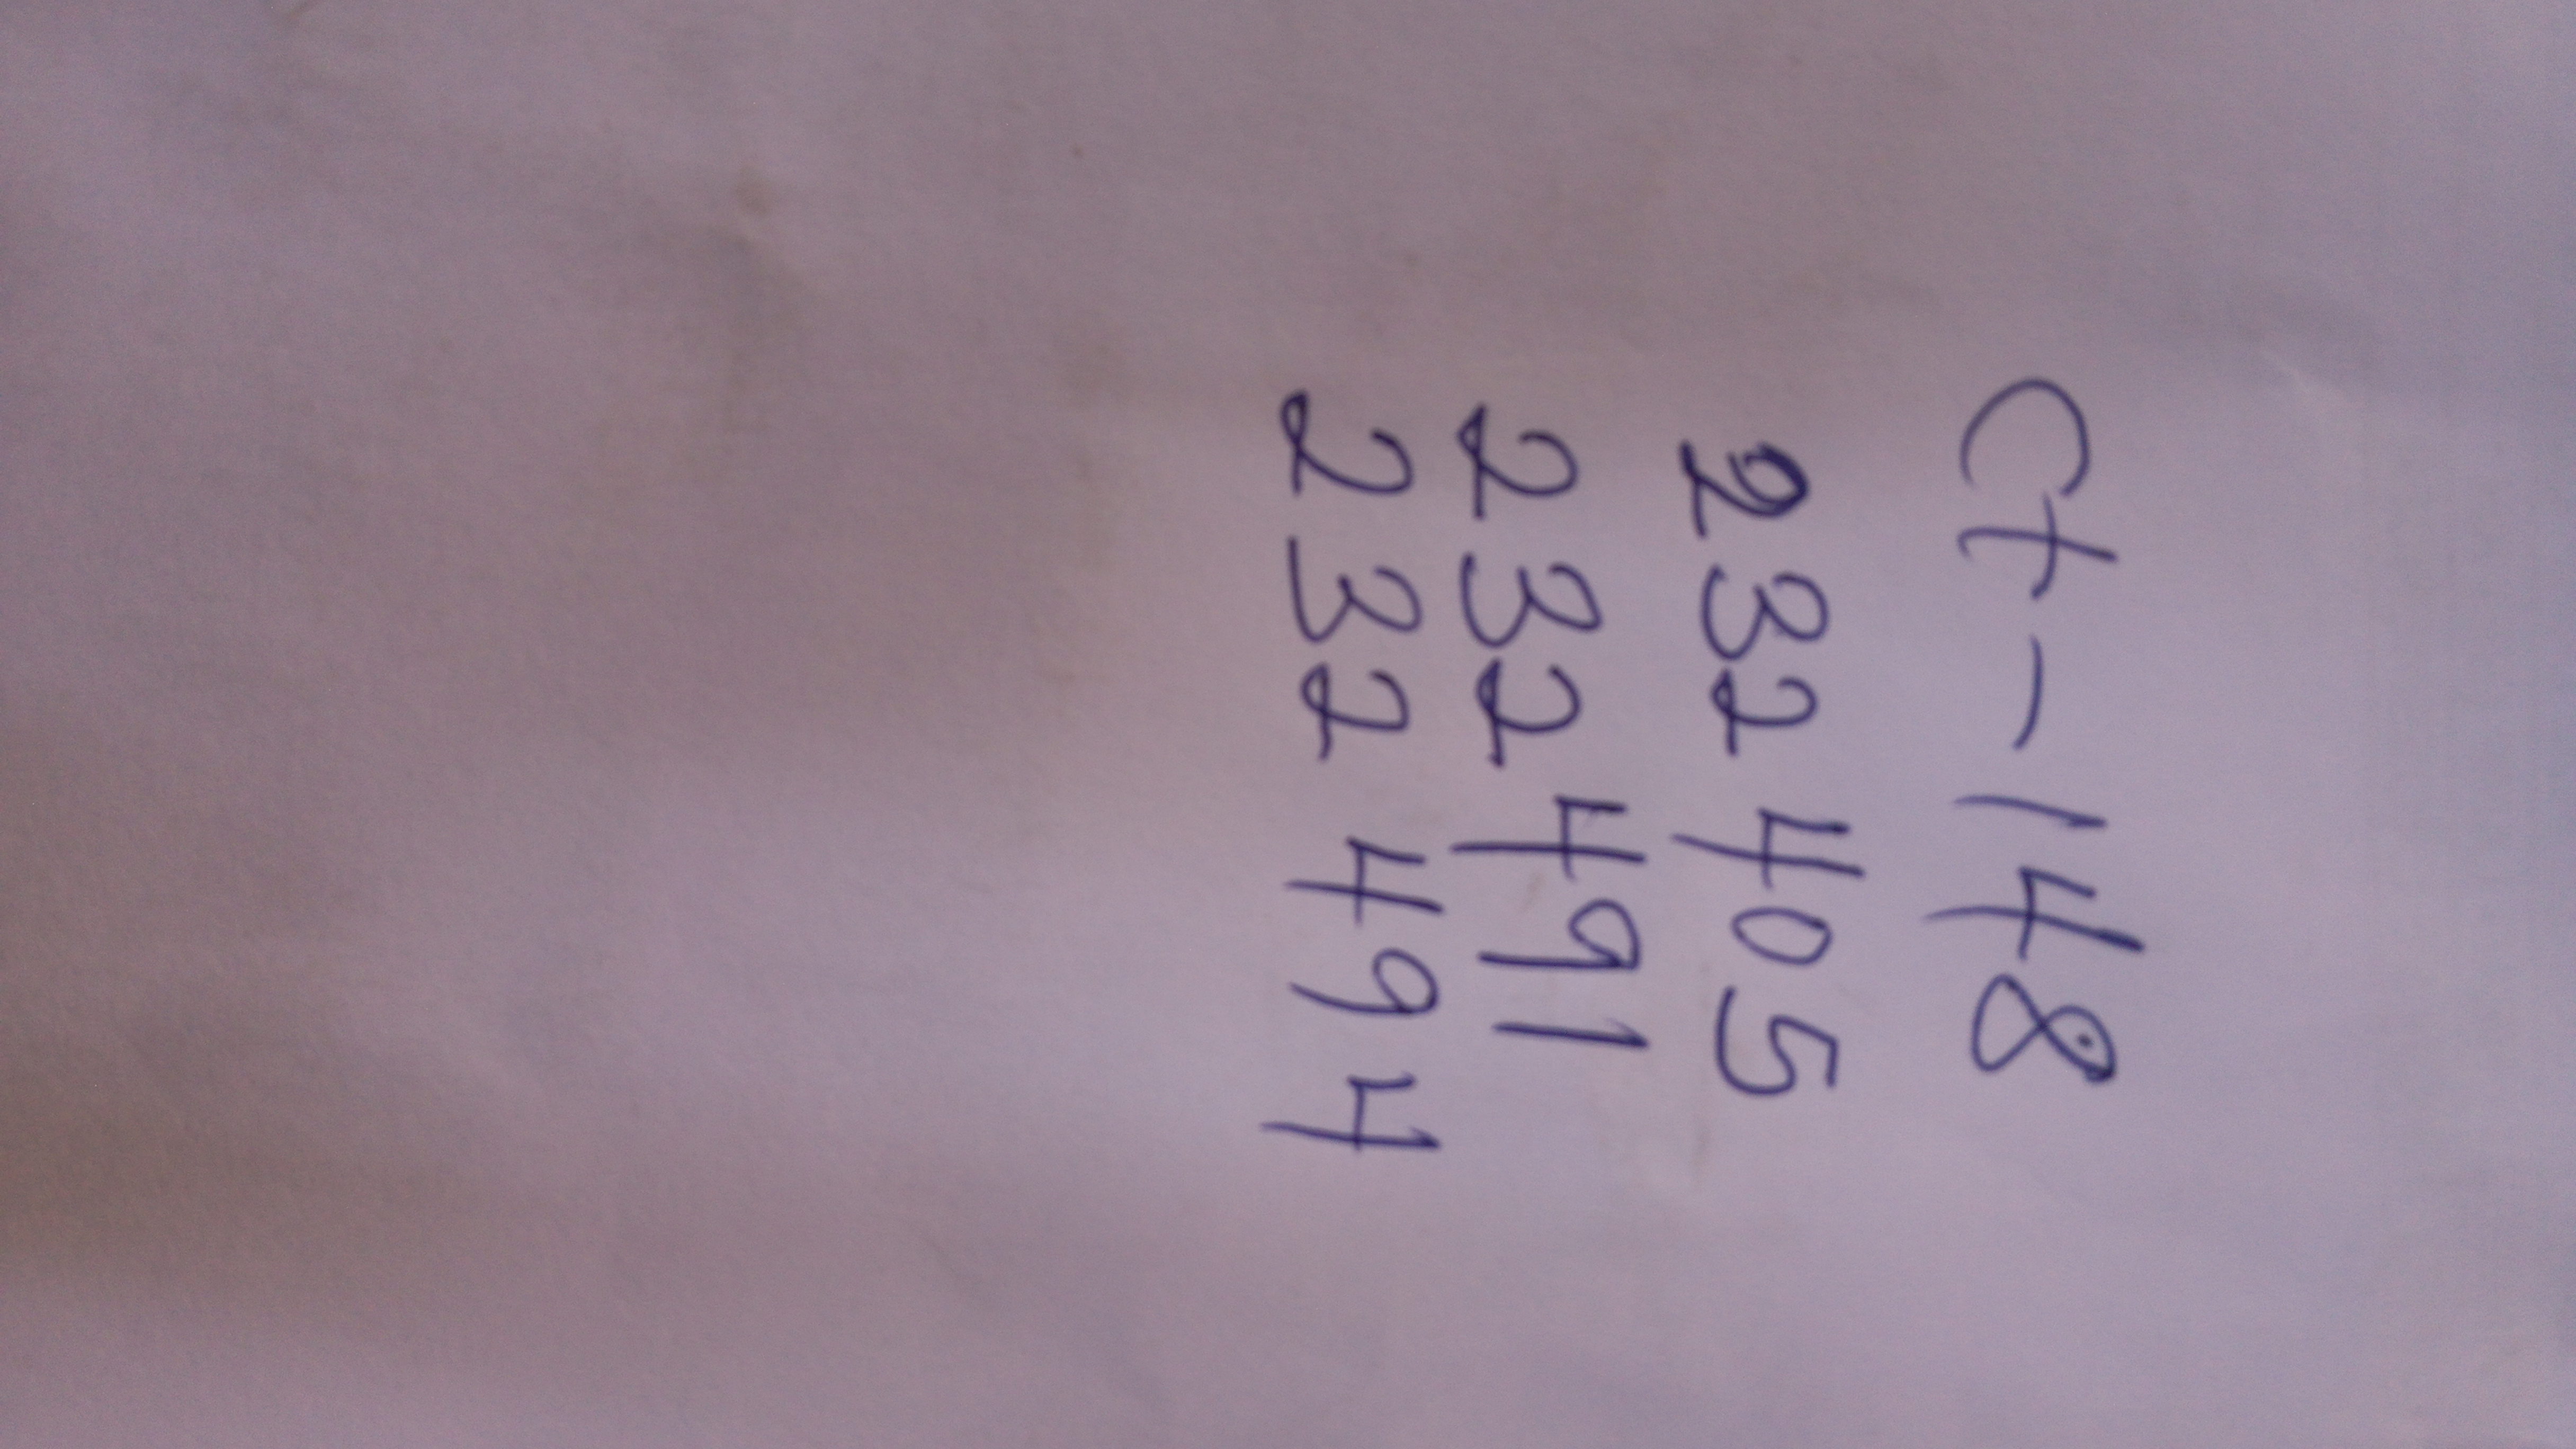 Ct - 148
232 405
232 491
232 494